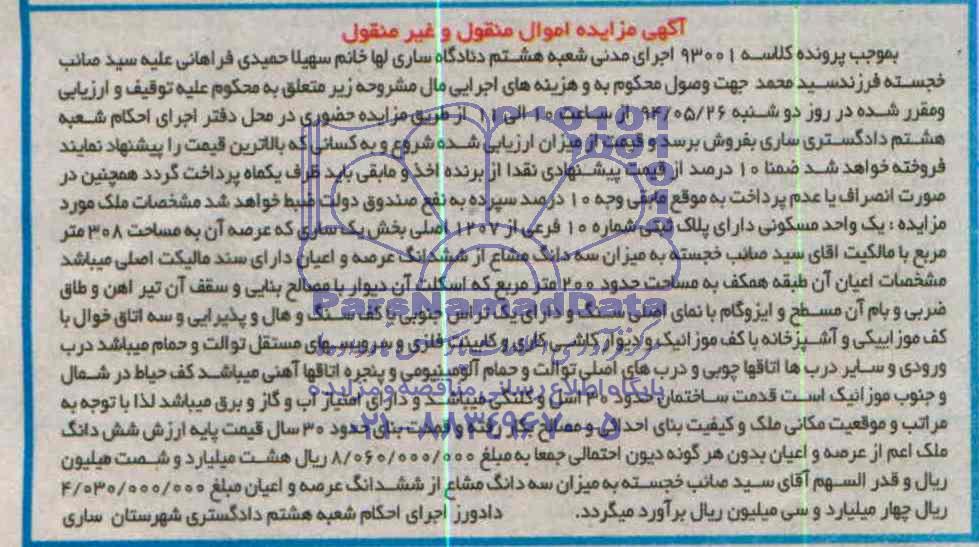 آگهی مزایده اموال منقول و غیر منقول
بموجب پرونده کلاسه ۹۳۰۰۱ اجرای مدنی شعبه هشتم دادگاه ساری لها خانم سهیلا حمیدی فراهانی علیه سید صائب
خجسته فرزندسید محمد جهت وصول محکوم به و هزینه های اجرایی مال مشروحه زیر متعلق به محکوم علیه توقیف و ارزیابی
ومقرر شده در روز دو شنبه ۹۴/۰۵/۲۶ از ساعت ۱۰ الی ۱۱ از طریق مزایده حضوری در محل دفتر اجرای احکام شعبه
هشتم دادگستری ساری بفروش برسد و قیمت از میزان ارزیابی شده شروع و به کسانی که بالاترین قیمت را پیشنهاد نمایند
فروخته خواهد شد ضمنا ۱۰ درصد از قیمت پیشنهادی نقدا از برنده اخذ و مابقی باید ظرف یکماه پرداخت گردد همچنین در
صورت انصراف یا عدم پرداخت به موقع مابقی وجه ۱۰ درصد سپرده به نفع صندوق دولت ضبط خواهد شد مشخصات ملک مورد
مزایده : یک واحد مسکونی دارای پلاک ثبتی شماره ۱۰ فرعی از ۱۲۰۷ اصلی بخش یک ساری که عرصه آن به مساحت ۳۰۸ متر
مربع با مالکیت اقای سید صائب خجسته به میزان سه دانگ مشاع از ششدانگ عرصه و اعیان دارای سند مالکیت اصلی میباشد
مشخصات اعیان آن طبقه همکف به مساحت حدود ۲۰۰ متر مربع که اسکلت آن دیوار با مصالح بنایی و سقف آن تیر اهن و طاق
ضربی و بام آن مسطح و ایزوگام با نمای اصلی سنگ و دارای یک تراس جنوبی با کف سنگ و هال و پذیرایی و سه اتاق خواب با
کف موزاییکی و آشپزخانه با کف موزائیک و دیوار کاشی کاری و کابینت فلزی و سرویسهای مستقل توالت و حمام میباشد درب
ورودی و سایر درب ها اتاقها چوبی و درب های اصلی توالت و حمام آلومینیومی و پنجره اتاقها آهنی میباشد کف حیاط در شمال
و جنوب موزائیک است قدمت ساختمان حدود ۳۰ سال و کلنگی میباشد و دارای امتیاز آب و گاز و برق میباشد لذا با توجه به
مراتب و موقعیت مکانی ملک و کیفیت بنای احداثی و مصالح بکار رفته و قدمت بنای حدود ۳۰ سال قیمت پایه ارزش شش دانگ
ملک اعم از عرصه و اعیان بدون هر گونه دیون احتمالی جمعا به مبلغ ۸/۰۶۰/۰۰۰/۰۰۰ ریال هشت میلیارد و شصت میلیون
ریال و قدر السهم آقای سید صائب خجسته به میزان سه دانگ مشاع از ششدانگ عرصه و اعیان مبلغ ۴/۰۳۰/۰۰۰/۰۰۰
ریال چهار میلیارد و سی میلیون ریال برآورد میگردد. دادورز اجرای احکام شعبه هشتم دادگستری شهرستان ساری
ParsNamadData
پایگاه اطلاع رسانی مناقصه و مزایده
۰۲۱-۸۸۳۴۹۶۷۰-۵